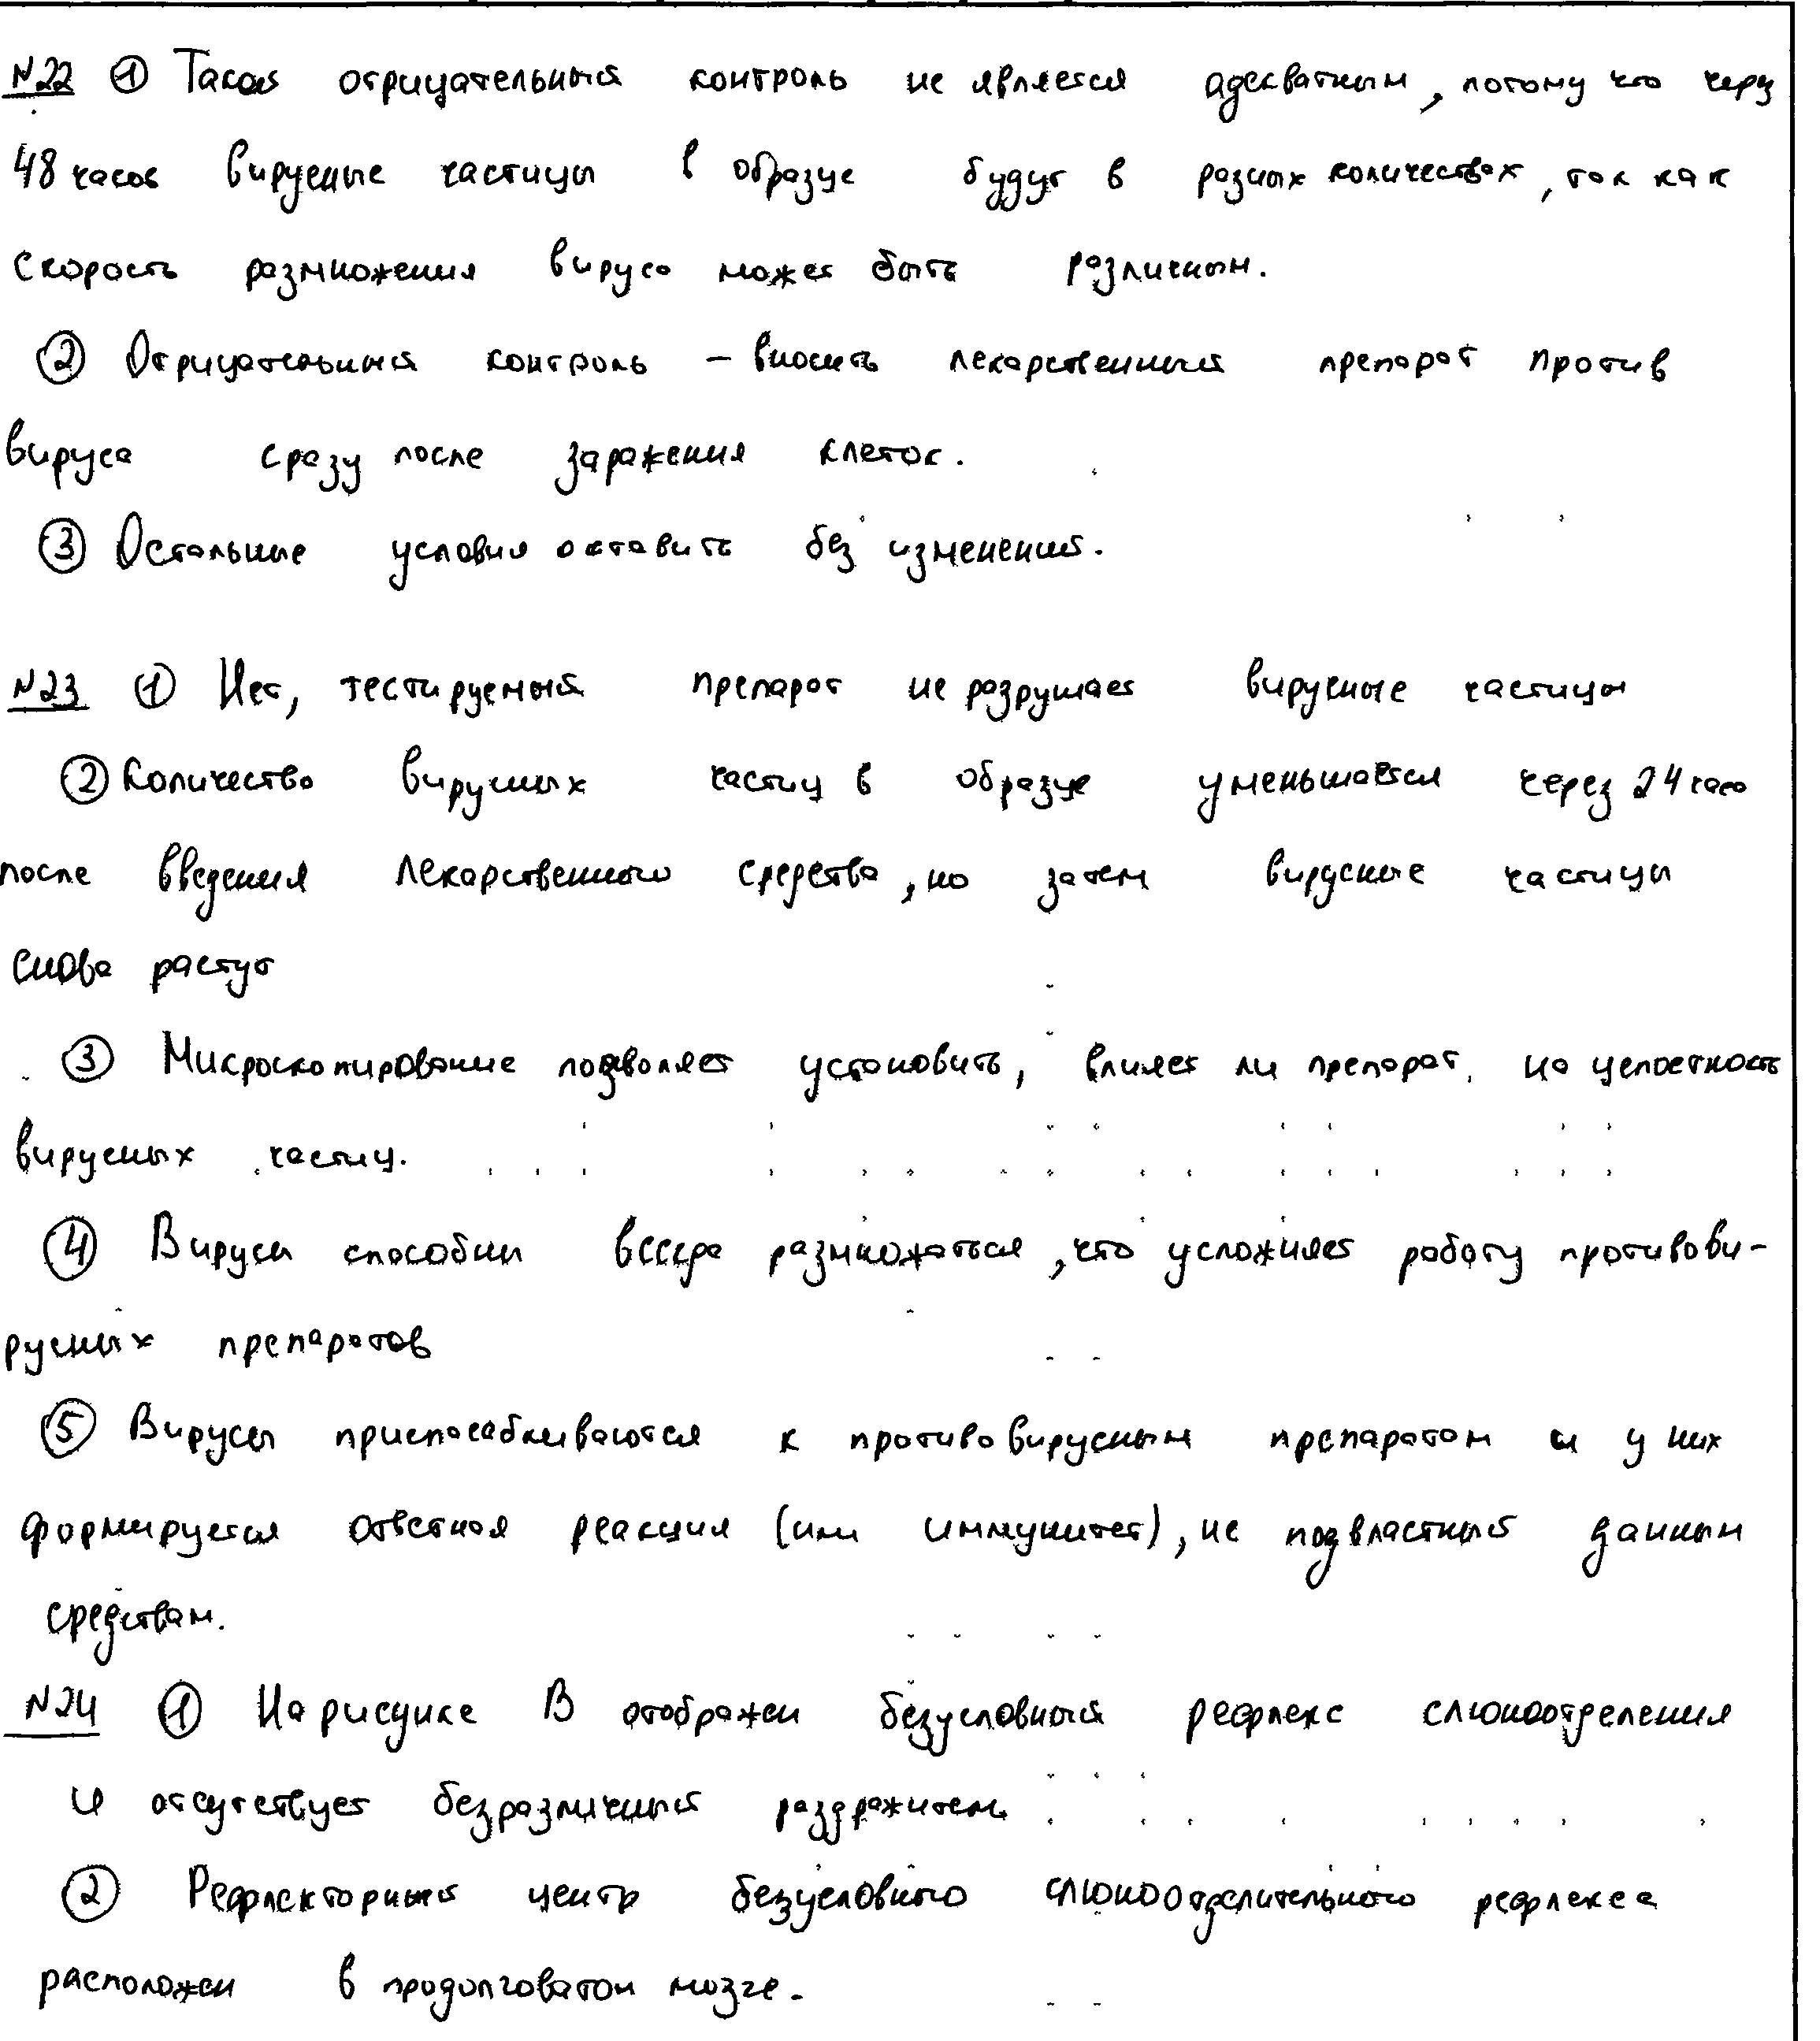 №22 ① Такой отрицательный контроль не является адекватным, потому что через
48 часов вирусные частицы в образце будут в разных количествах, так как
скорость размножения вируса может быть различным.
② Отрицательный контроль – вносить лекарственный препарат против
вируса сразу после заражения клеток.
③ Остальные условия оставить без изменений.
№23 ① Нет, тестируемый препарат не разрушает вирусные частицы
② Количество вирусных частиц в образце уменьшается через 24 часа
после введения лекарственного средства, но затем вирусные частицы
снова растут
③ Микроскопирование позволяет установить, влияет ли препарат на целостность
вирусных частиц.
④ Вирусы способны всегда размножаться, что усложняет работу противови-
русных препаратов
⑤ Вирусы приспосабливаются к противовирусным препаратам и у них
формируется ответная реакция (или иммунитет), не подвластный данным
средствам.
№24 ① На рисунке В отображен безусловный рефлекс слюноотделения
и отсутствует безразличный раздражитель
② Рефлекторный центр безусловного слюноотделительного рефлекса
расположен в продолговатом мозге.